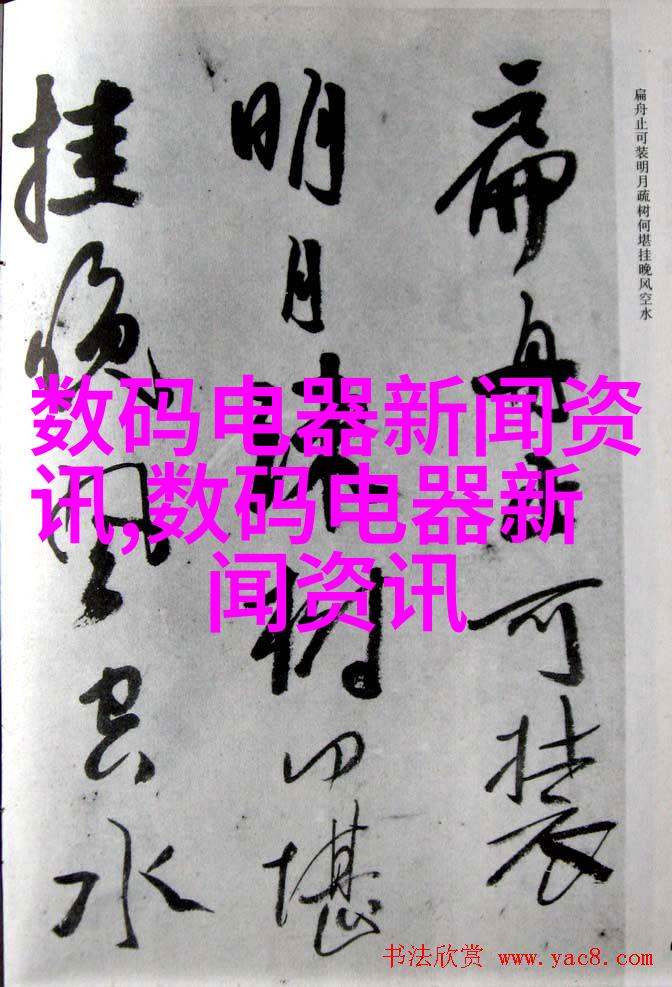 扁舟止可装
明月疏树何堪
挂晚风空水
扁舟止可装明月疏树何堪挂晚风空水
数码电器新闻资
讯,数码电器新
闻资讯
书法欣赏 www.yac8.com